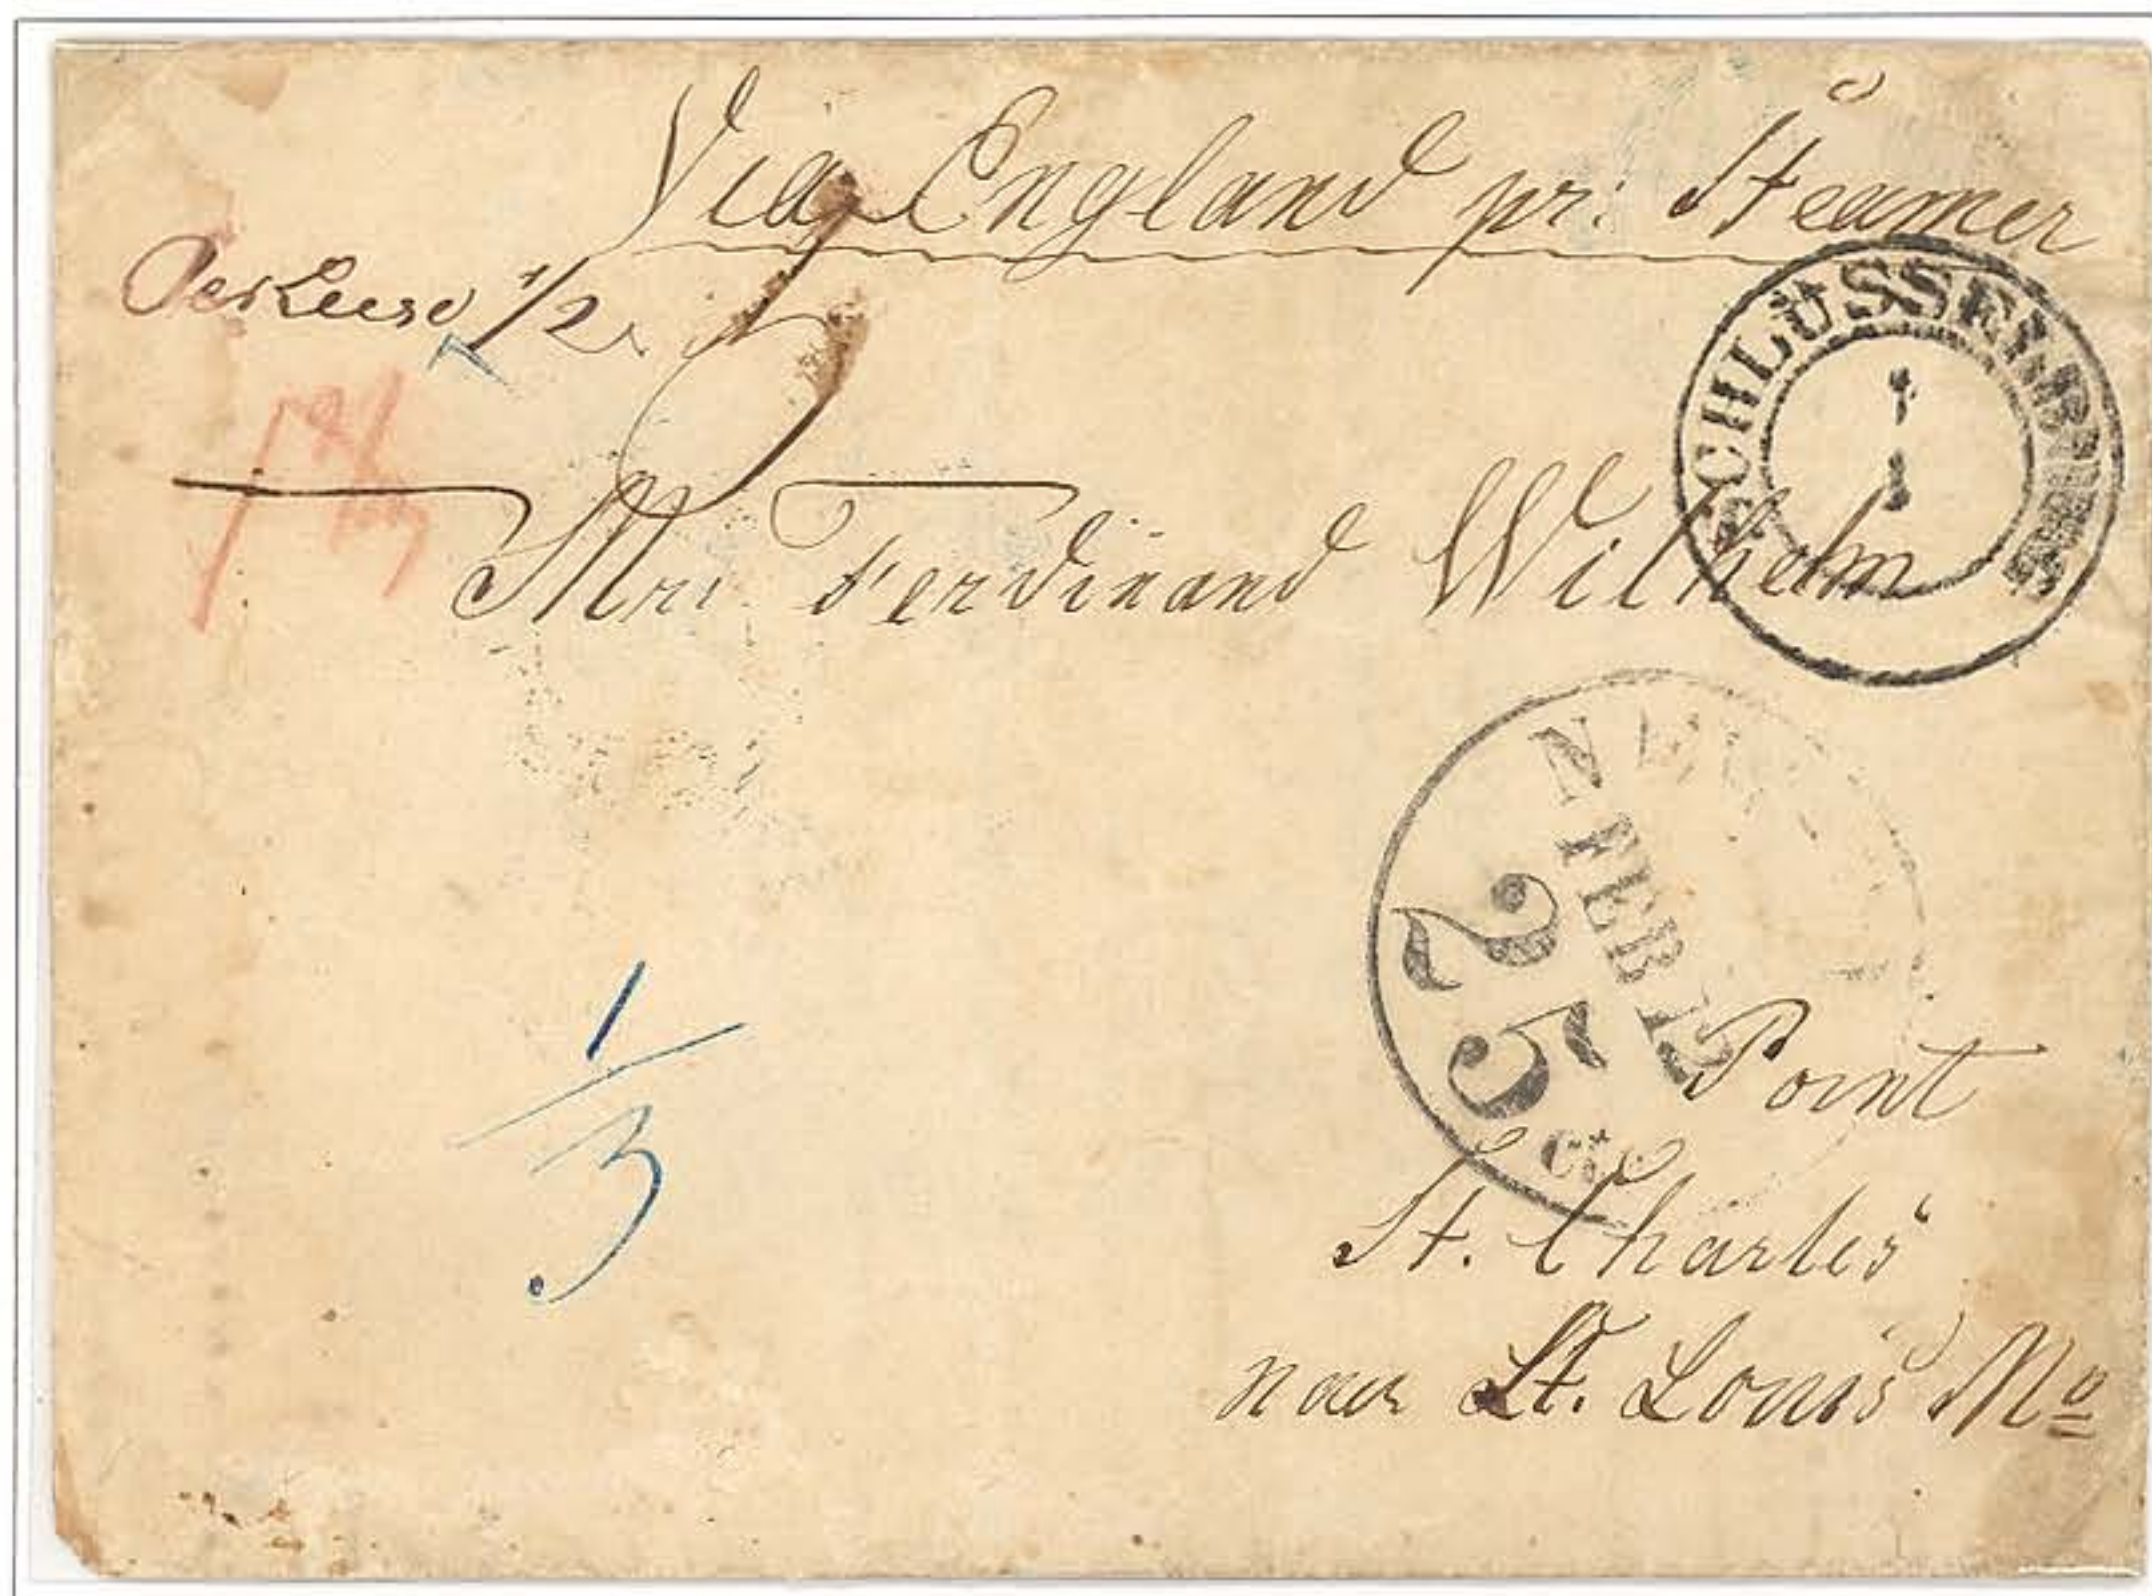 Via England pr: Steamer
1/2
SCHLÜSSELBURG
1
1
Mr: Ferdinand Wilhelm
NEW
FEB 12
25
Cts
1/3
Point
St. Charles
near St. Louis Mo